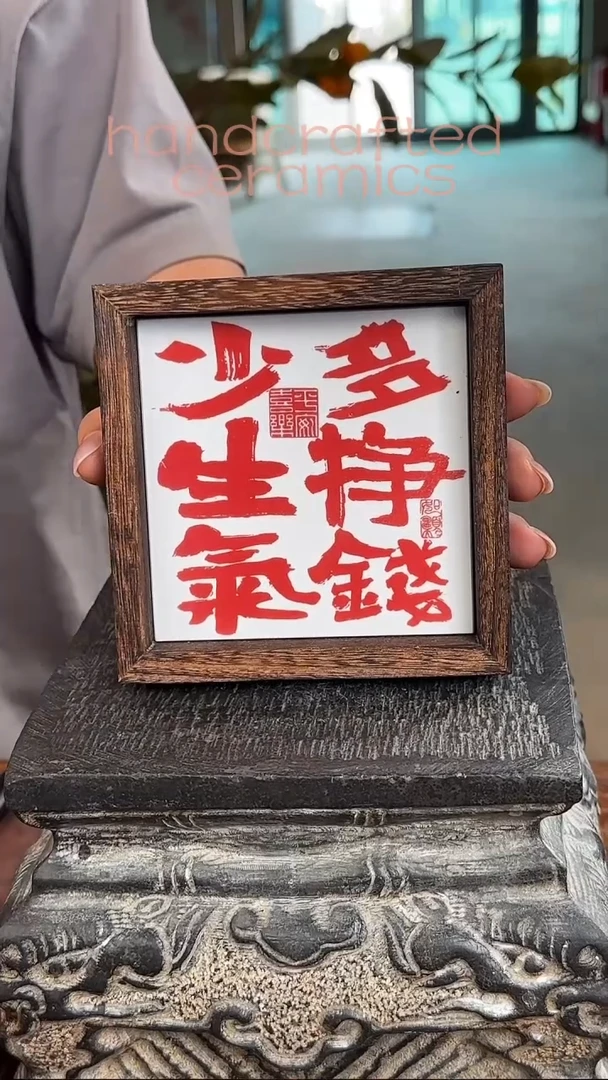 handcrafted
ceramics
多掙錢
少生氣
平安
喜樂